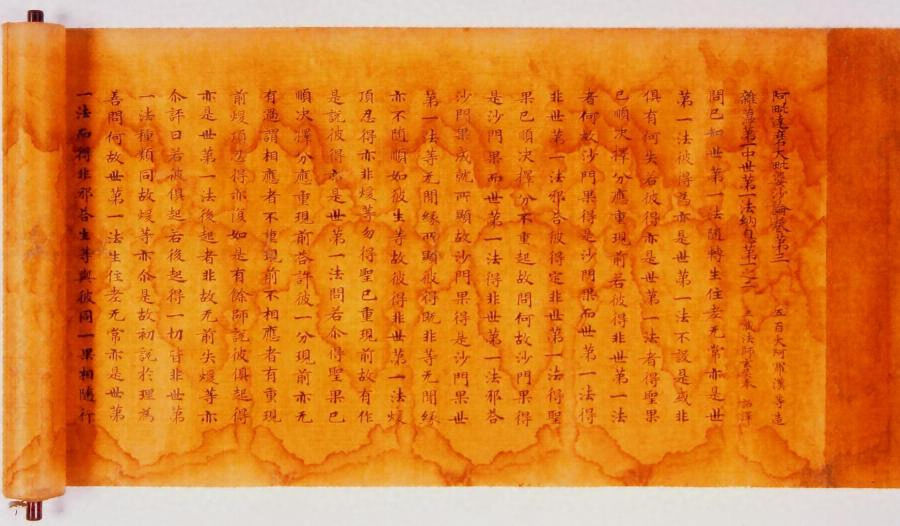 阿毗達磨大毗婆沙論卷第三 五百大阿羅漢等造
雜蘊第一中世第一法納息第一之二 三藏法師玄奘奉 詔譯
問已知世第一法隨轉生住老无常亦是世
第一法彼得為亦是世第一法不設是或非
俱有何失若彼得亦是世第一法者得聖果
已順決擇分應重現前若彼得非世第一法
者何故沙門果得是沙門果而世第一法得
非世第一法邪荅彼得定非世第一法得聖
果已順決擇分不重起故問何故沙門果得
是沙門果而世第一法得非世第一法邪荅
沙門果成就所顯故沙門果得是沙門果世
第一法等无間緣所顯彼得既非等无間緣
亦不隨順如彼生等故彼得非世第一法煖
頂忍得亦非煖等勿得聖已重現前故有作
是說彼得亦是世第一法問若尒得聖果已
順決擇分應重現前荅許彼一分現前亦无
有過謂相應者不重現前不相應者有重現
前煖頂忍得亦復如是有餘師說彼俱起得
亦是世第一法後起者非故无前失煖等亦
尒評曰若彼俱起若後起得一切皆非世第
一法種類同故煖等亦尒是故初說於理為
善問何故世第一法生住老无常亦是世第
一法而得非邪荅生等與彼同一果相隨行